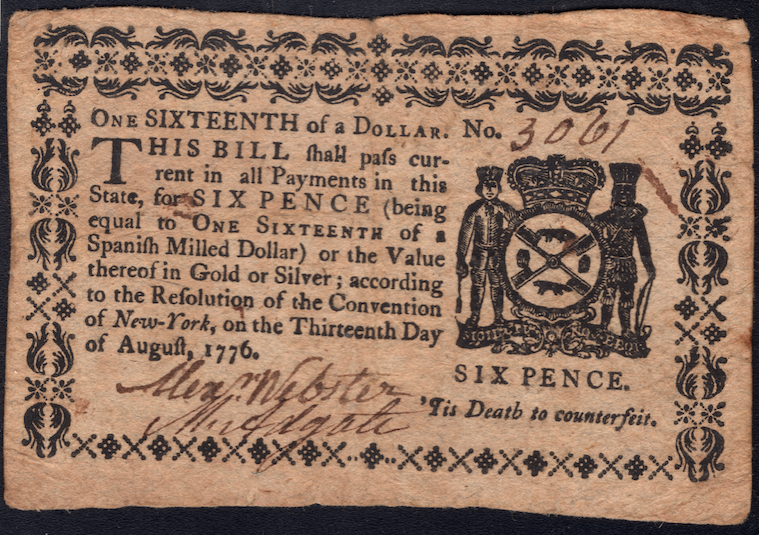 ONE SIXTEENTH of a DOLLAR. No. 3061
THIS BILL ſhall paſs cur-
rent in all Payments in this
State, for SIX PENCE (being
equal to ONE SIXTEENTH of a
Spaniſh Milled Dollar) or the Value
thereof in Gold or Silver; according
to the Reſolution of the Convention
of New-York, on the Thirteenth Day
of Auguſt, 1776.
SIX PENCE.
'Tis Death to counterfeit.
Alexr Webster